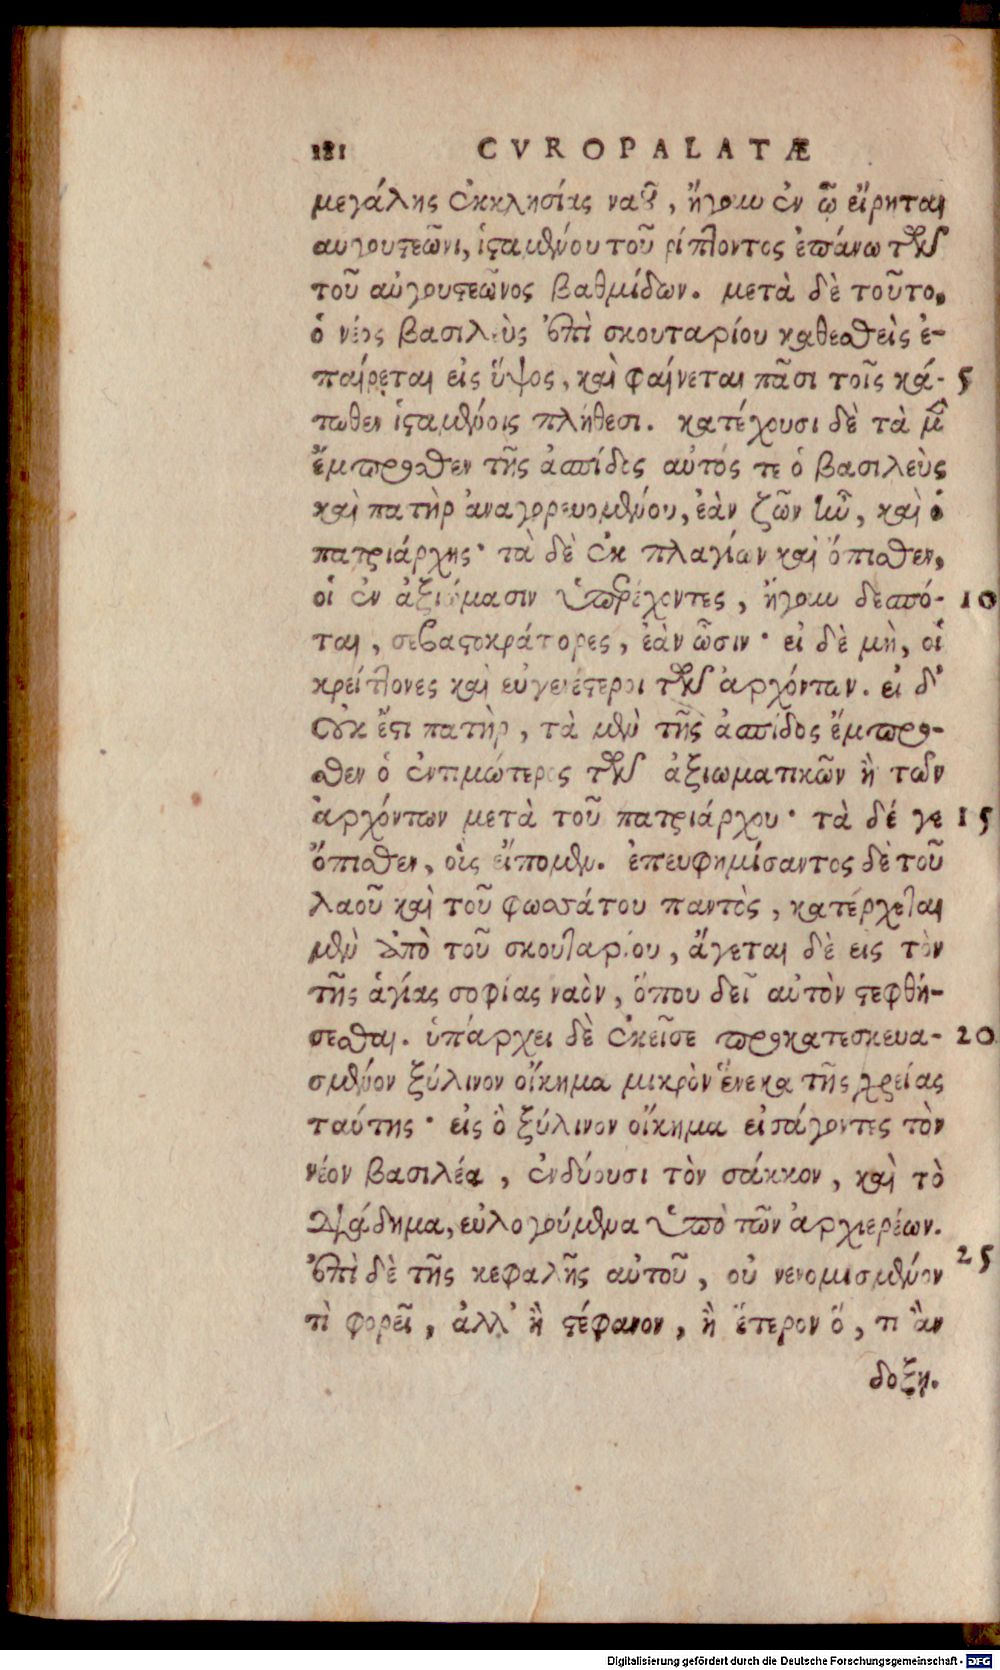 181 CVROPALATÆ
μεγάλης ἐκκλησίας ναοῦ, ἤγουν ἐν ᾧ εἴρηται
αυγουστεῶνι, ἱσταμένου τοῦ ρίπτοντος ἐπάνω τῶν
τοῦ αὐγουστεῶνος βαθμίδων. μετὰ δὲ τοῦτο,
ὁ νέος βασιλεὺς ἐπὶ σκουταρίου καθεσθεὶς ἐ-
παίρεται εἰς ὕψος, καὶ φαίνεται πᾶσι τοῖς κά- 5
τωθεν ἱσταμένοις πλήθεσι. κατέχουσι δὲ τὰ μὲν
ἔμπροσθεν τῆς ἀσπίδος αὐτός τε ὁ βασιλεὺς
καὶ πατὴρ ἀναγορευομένου, ἐὰν ζῶν ἦν, καὶ ὁ
πατριάρχης· τὰ δὲ ἐκ πλαγίων καὶ ὄπισθεν,
οἱ ἐν ἀξιώμασιν ὑπερέχοντες, ἤγουν δεσπό- 10
ται, σεβαστοκράτορες, ἐὰν ὦσιν· εἰ δὲ μὴ, οἱ
κρείττονες καὶ εὐγενέστεροι τῶν ἀρχόντων. εἰ δ'
οὐκ ἔστι πατὴρ, τὰ μὲν τῆς ἀσπίδος ἔμπροσ-
θεν ὁ ἐντιμώτερος τῶν ἀξιωματικῶν ἢ τῶν
ἀρχόντων μετὰ τοῦ πατριάρχου· τὰ δέ γε 15
ὄπισθεν, οἷς εἴπομεν. ἐπευφημίσαντος δὲ τοῦ
λαοῦ καὶ τοῦ φωσσάτου παντὸς, κατέρχεται
μὲν ἀπὸ τοῦ σκουταρίου, ἄγεται δὲ εἰς τὸν
τῆς ἁγίας σοφίας ναὸν, ὅπου δεῖ αὐτὸν στεφθή-
σεσθαι. ὑπάρχει δὲ ἐκεῖσε προκατεσκευα- 20
σμένον ξύλινον οἴκημα μικρὸν ἕνεκα τῆς χρείας
ταύτης· εἰς ὃ ξύλινον οἴκημα εἰσάγοντες τὸν
νέον βασιλέα, ἐνδύουσι τὸν σάκκον, καὶ τὸ
διάδημα, εὐλογούμενα ὑπὸ τῶν ἀρχιερέων.
ἐπὶ δὲ τῆς κεφαλῆς αὐτοῦ, οὐ νενομισμένον 25
τὶ φορεῖ, ἀλλ' ἢ στέφανον, ἢ ἕτερον ὅ, τι ἂν
δοξη.
Digitalisierung gefördert durch die Deutsche Forschungsgemeinschaft - DFG